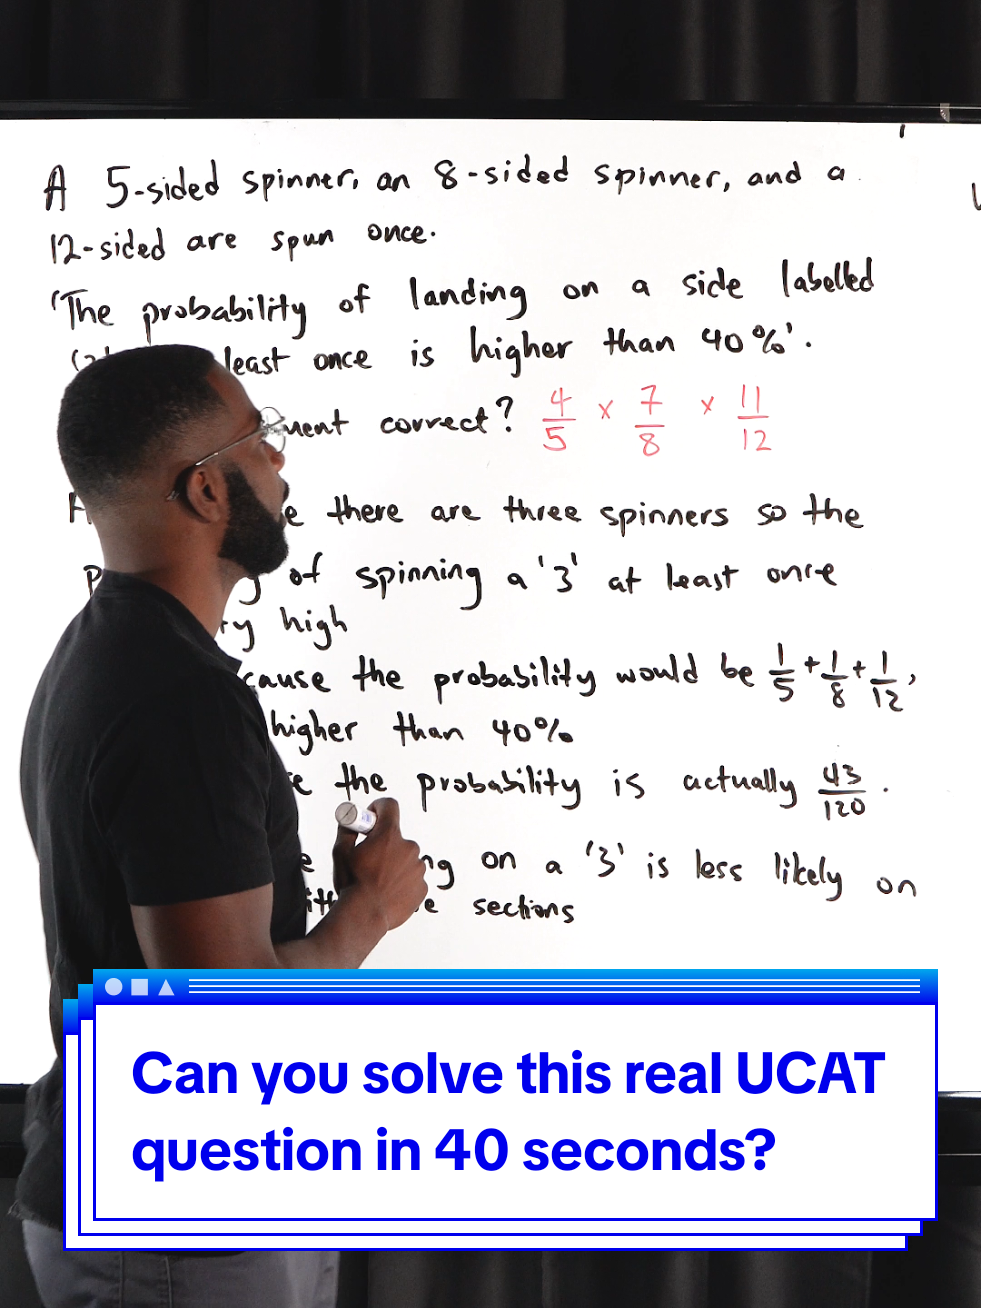 A 5-sided spinner, an 8-sided spinner, and a
12-sided are spun once.
'The probability of landing on a side labelled
least once is higher than 40%'.
correct? 4/5 × 7/8 × 11/12
there are three spinners so the
of spinning a '3' at least once
high
the probability would be 1/5 + 1/8 + 1/12,
higher than 40%
the probability is actually 43/120.
on a '3' is less likely on
sections
Can you solve this real UCAT
question in 40 seconds?